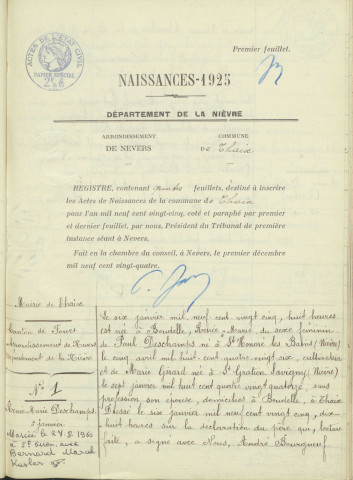 Premier feuillet.
ACTES DE L'ÉTAT CIVIL
PAPIER SPÉCIAL
NAISSANCES-1925
DÉPARTEMENT DE LA NIÈVRE
ARRONDISSEMENT
DE NEVERS
COMMUNE
DE Thaix
REGISTRE, contenant feuillets, destiné à inscrire
les Actes de Naissances de la commune de Thaix
pour l'an mil neuf cent vingt-cinq, coté et paraphé par premier
et dernier feuillet, par nous, Président du Tribunal de première
instance séant à Nevers.
Fait en la chambre du conseil, à Nevers, le premier décembre
mil neuf cent vingt-quatre.
Mairie de Thaix
Canton de Fours
Arrondissement de Nevers
Département de la Nièvre
N° 1
Marie Deschamps
janvier
Mariée le 1960
à St avec
Bernard Marcel
Le six janvier mil neuf cent vingt cinq, huit heures
est née à Boudelle, Marie du sexe féminin
de Paul Deschamps né à St Honoré les Bains (Nièvre)
le cinq avril mil huit cent quatre-vingt-six, cultivateur
et de Marie Girard née à St Gratien Savigny (Nièvre)
le sept janvier mil huit cent quatre vingt quatorze, sans
profession son épouse, domiciliés à Boudelle, à Thaix
Dressé le six janvier mil neuf cent vingt cinq, dix-
huit heures sur la déclaration du père qui, lecture
faite, a signé avec Nous, André Bourgneuf